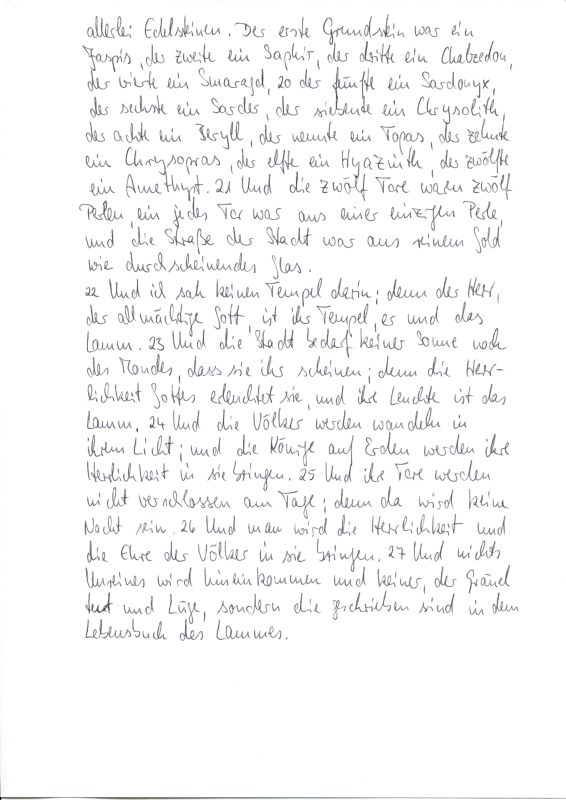 allerlei Edelsteinen. Der erste Grundstein war ein
Jaspis, der zweite ein Saphir, der dritte ein Chalzedon,
der vierte ein Smaragd, 20 der fünfte ein Sardonyx,
der sechste ein Sarder, der siebente ein Chrysolith,
der achte ein Beryll, der neunte ein Topas, der zehnte
ein Chrysopras, der elfte ein Hyazinth, der zwölfte
ein Amethyst. 21 Und die zwölf Tore waren zwölf
Perlen, ein jedes Tor war aus einer einzigen Perle,
und die Straße der Stadt war aus reinem Gold
wie durchscheinendes Glas.
22 Und ich sah keinen Tempel darin; denn der Herr,
der allmächtige Gott, ist ihr Tempel, er und das
Lamm. 23 Und die Stadt bedarf keiner Sonne noch
des Mondes, dass sie ihr scheinen; denn die Herr-
lichkeit Gottes erleuchtet sie, und ihre Leuchte ist das
Lamm. 24 Und die Völker werden wandeln in
ihrem Licht; und die Könige auf Erden werden ihre
Herrlichkeit in sie bringen. 25 Und ihre Tore werden
nicht verschlossen am Tage; denn da wird keine
Nacht sein. 26 Und man wird die Herrlichkeit und
die Ehre der Völker in sie bringen. 27 Und nichts
Unreines wird hineinkommen und keiner, der Gräuel
tut und Lüge, sondern die geschrieben sind in dem
Lebensbuch des Lammes.